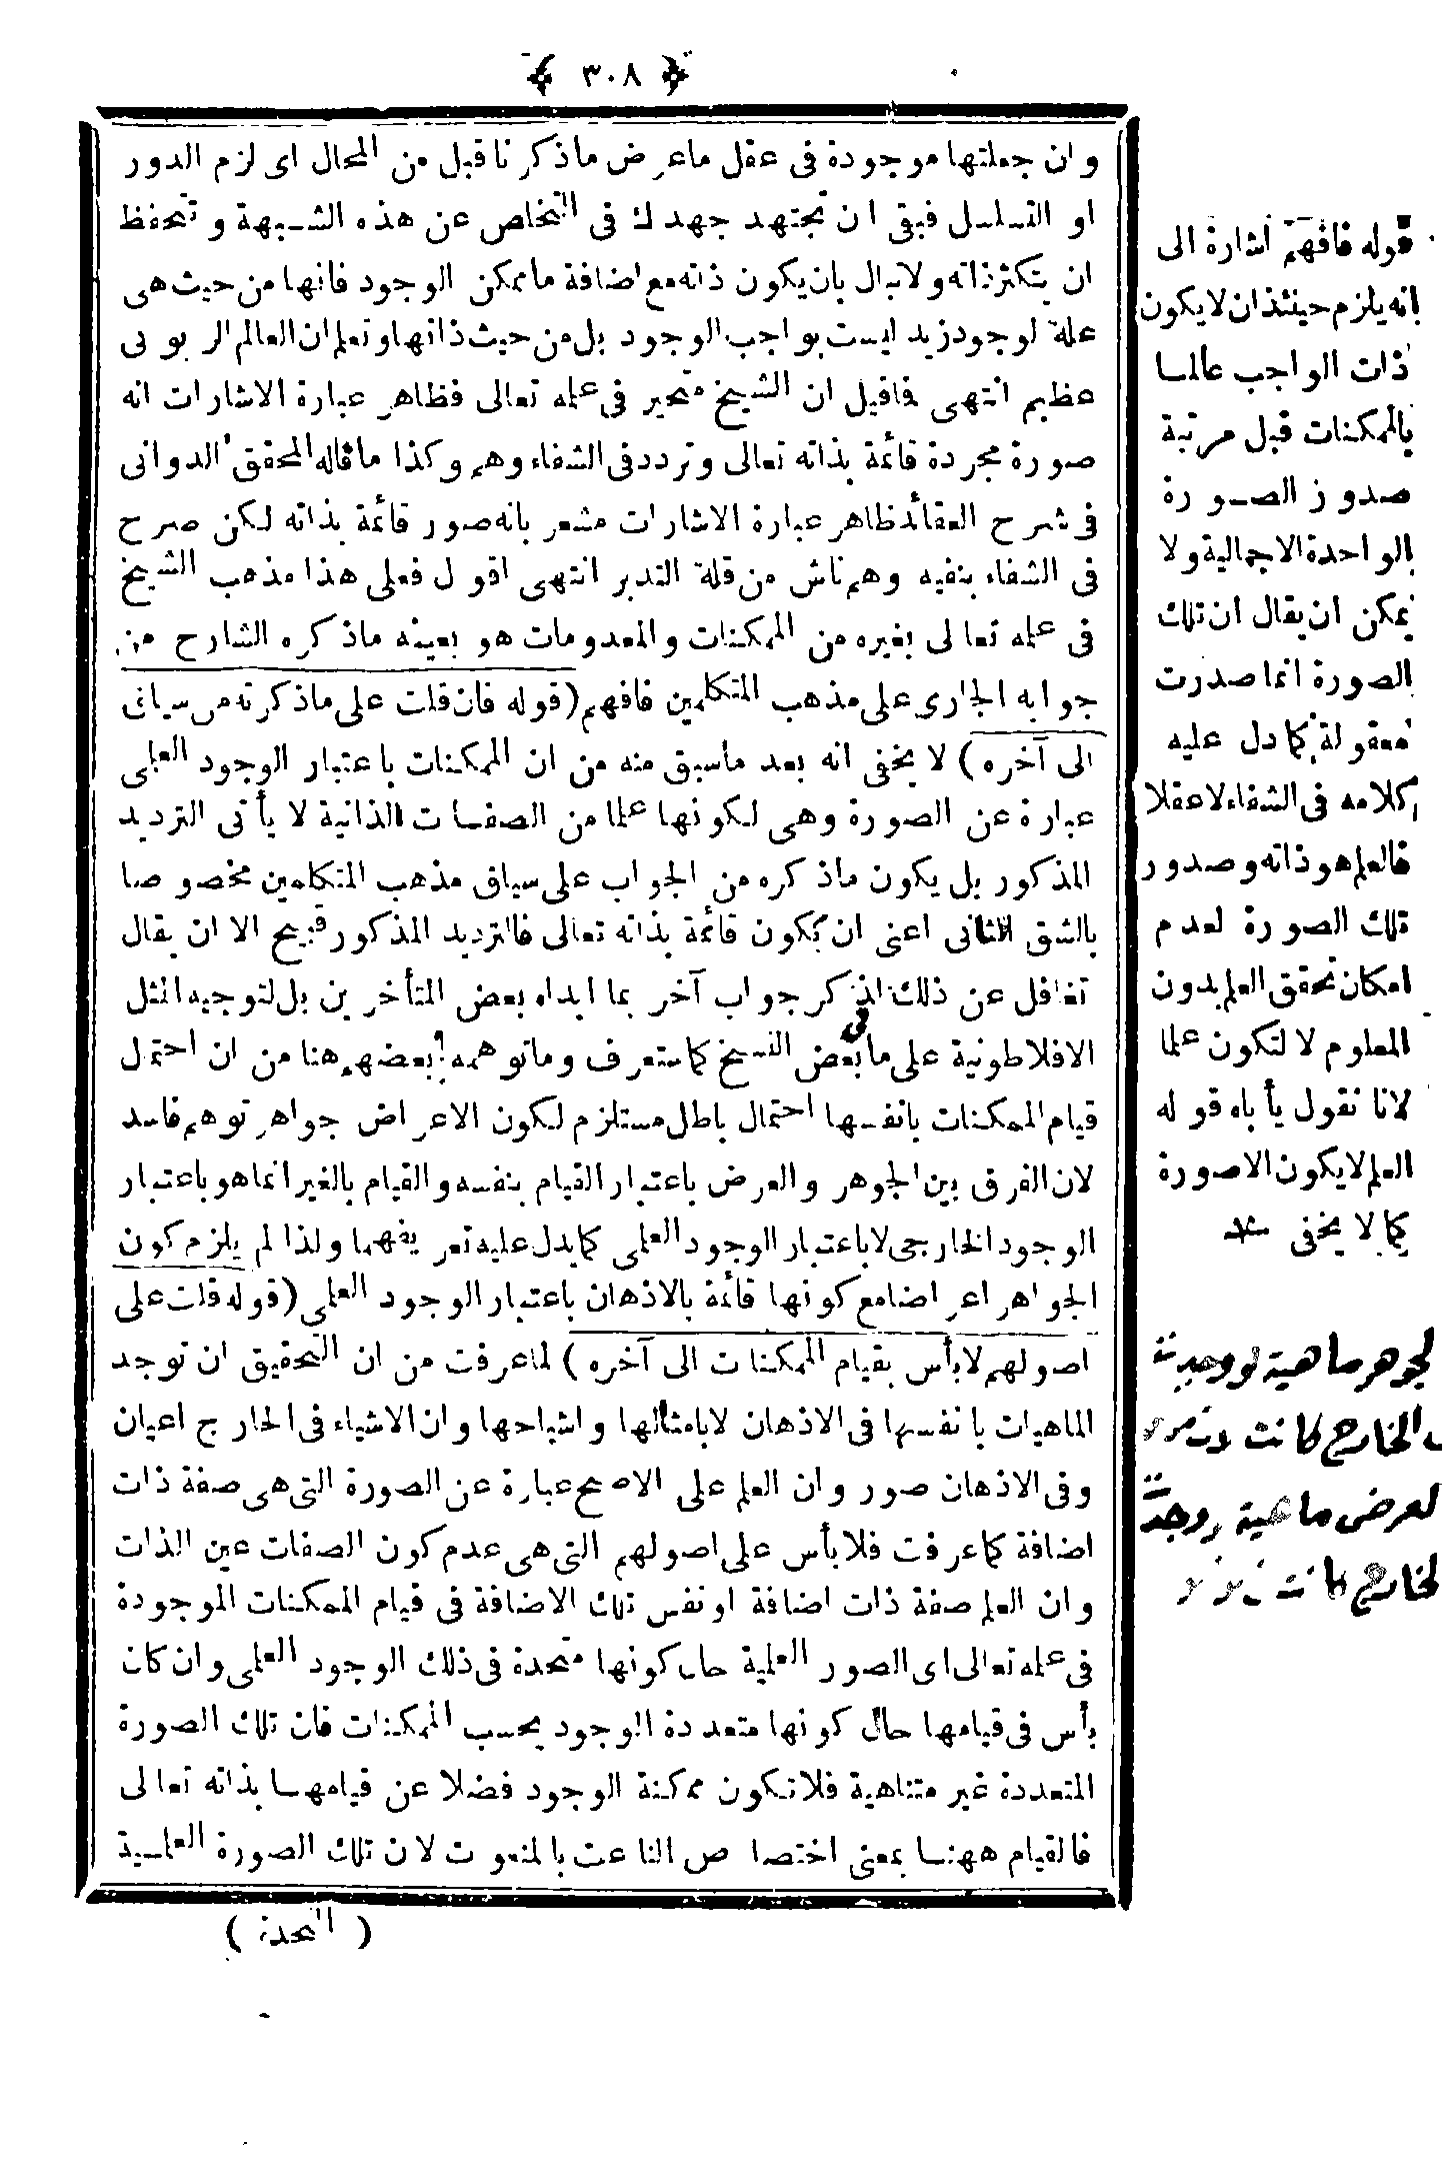 ٣٠٨
وان جعلتها موجودة فى عقل ما عرض ما ذكرنا قبل من المحال اى لزم الدور
او التسلسل فبقى ان تجتهد جهدك فى التخاص عن هذه الشبهة وتحفظ
ان يتكثر ذاته ولا تبال بان يكون ذاته مع اضافة ما ممكن الوجود فانها من حيث هى
علة لوجود زيد ليست بواجب الوجود بل من حيث ذاتها وتعلم ان العالم الربوبى
عظيم انتهى فما قيل ان الشيخ متحير فى علمه تعالى فظاهر عبارة الاشارات انه
صورة مجردة قائمة بذاته تعالى وتردد فى الشفاء وهم وكذا ما قاله المحقق الدوانى
فى شرح العقائد ظاهر عبارة الاشارات مشعر بانه صور قائمة بذاته لكن صرح
فى الشفاء بنفيه وهم ناش من قلة التدبر انتهى اقول فعلى هذا مذهب الشيخ
فى علمه تعالى بغيره من الممكنات والمعدومات هو بعينه ما ذكره الشارح من
جوابه الجارى على مذهب المتكلمين فافهم (قوله فان قلت على ما ذكرته من سياق
الى آخره) لا يخفى انه بعد ما سبق منه من ان الممكنات باعتبار الوجود العلمى
عبارة عن الصورة وهى لكونها علما من الصفات الذاتية لا يأتى الترديد
المذكور بل يكون ما ذكره من الجواب على سياق مذهب المتكلمين مخصوصا
بالشق الثانى اعنى ان يكون قائمة بذاته تعالى فالترديد المذكور قبيح الا ان يقال
تغافل عن ذلك لذكر جواب آخر بما ابداه بعض المتأخرين بل لتوجيه المثل
الافلاطونية على ما فى بعض النسخ كما ستعرف وما توهمه بعضهم هنا من ان احتمال
قيام الممكنات بانفسها احتمال باطل مستلزم لكون الاعراض جواهر توهم فاسد
لان الفرق بين الجوهر والعرض باعتبار القيام بنفسه والقيام بالغير انما هو باعتبار
الوجود الخارجى لا باعتبار الوجود العلمى كما يدل عليه تعريفهما ولذا لم يلزم كون
الجواهر اعراضا مع كونها قائمة بالاذهان باعتبار الوجود العلمى (قوله قلت على
اصولهم لا بأس بقيام الممكنات الى آخره) لما عرفت من ان التحقيق ان توجد
الماهيات بانفسها فى الاذهان لا بامثالها واشباحها وان الاشياء فى الخارج اعيان
وفى الاذهان صور وان العلم على الاصح عبارة عن الصورة التى هى صفة ذات
اضافة كما عرفت فلا بأس على اصولهم التى هى عدم كون الصفات عين الذات
وان العلم صفة ذات اضافة او نفس تلك الاضافة فى قيام الممكنات الموجودة
فى علمه تعالى اى الصور العلمية حال كونها متحدة فى ذلك الوجود العلمى وان كان
بأس فى قيامها حال كونها متعددة الوجود بحسب الممكنات فان تلك الصورة
المتعددة غير متناهية فلا تكون ممكنة الوجود فضلا عن قيامها بذاته تعالى
فالقيام ههنا بمعنى اختصاص الناعت بالمنعوت لان تلك الصورة العلمية
( المتحدة )
قوله فافهم اشارة الى
انه يلزم حينئذ ان لا يكون
ذات الواجب عالما
بالممكنات قبل مرتبة
صدور الصورة
الواحدة الاجمالية ولا
يمكن ان يقال ان تلك
الصورة انما صدرت
معقولة كما دل عليه
كلامه فى الشفاء لا عقلا
فالعلم هو ذاته وصدور
تلك الصورة لعدم
امكان تحقق العلم بدون
المعلوم لا لتكون علما
لانا نقول يأباه قوله
العلم لا يكون الا صورة
كما لا يخفى
لجوهر ماهية لو وجدت
الخارج كانت
لعرض ماهية وجدت
لخارج كانت